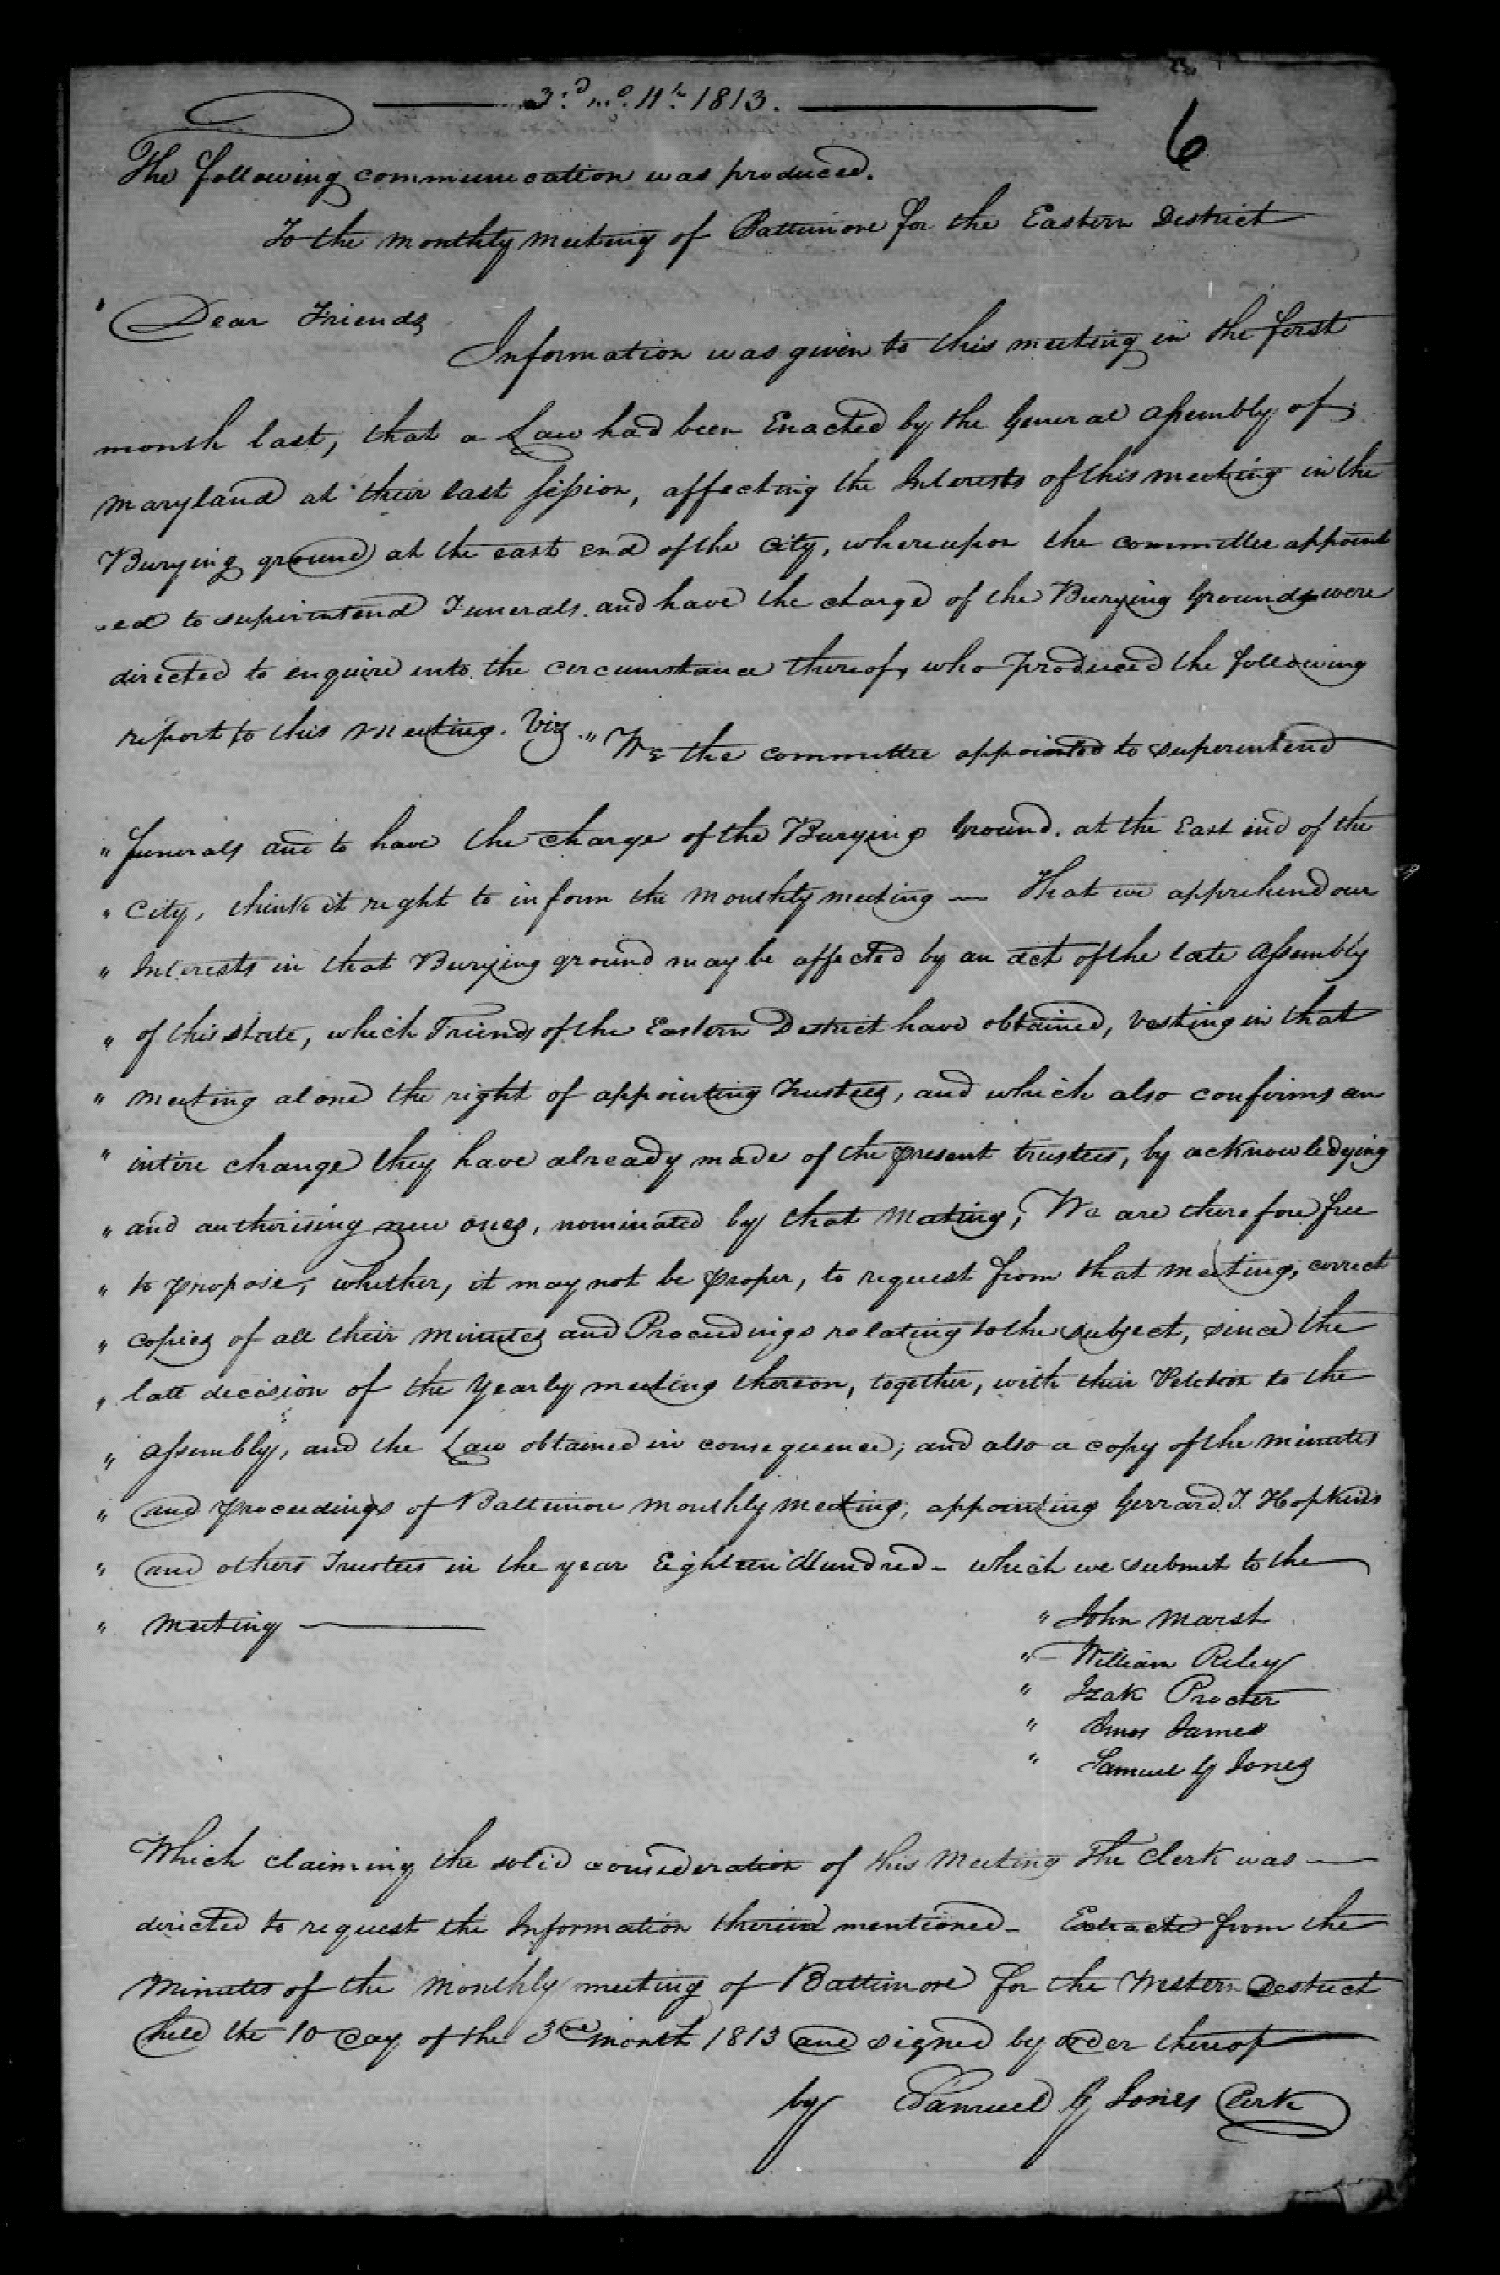 3.d mo. 11th 1813.
6
The following communication was produced.
To the monthly meeting of Baltimore for the Eastern District
Dear Friends
Information was given to this meeting in the first
month last, that a Law had been Enacted by the General Assembly of
Maryland at their last session, affecting the Interests of this meeting in the
Burying ground at the east end of the City, whereupon the committee appoint
ed to superintend Funerals. and have the charge of the Burying Grounds were
directed to enquire into the circumstance thereof, who produced the following
report to this meeting. Viz. " We the committee appointed to superintend
" funerals and to have the charge of the Burying Ground. at the East end of the
" City, think it right to inform the monthly meeting — That we apprehend our
" Interests in that Burying ground may be affected by an act of the late Assembly
" of this state, which Friends of the Eastern District have obtained, vesting in that
" meeting alone the right of appointing Trustees, and which also confirms an
" intire change they have already made of the present trustees, by acknowledging
" and authorising new ones, nominated by that meeting; We are therefore free
" to propose, whether, it may not be proper, to request from that meeting, correct
" copies of all their minutes and Proceedings relating to the subject, since the
" late decision of the Yearly meeting thereon, together, with their Petition to the
" Assembly, and the Law obtained in consequence; and also a copy of the minutes
" and proceedings of Baltimore monthly meeting, appointing Gerrard T. Hopkins
" and others Trustees in the year Eighteen Hundred - which we submit to the
" meeting —
" John Marsh
" William Riley
" Izak Procter
" Amos James
" Samuel G Jones
Which claiming the solid consideration of this Meeting The Clerk was —
directed to request the Information therein mentioned - Extracted from the
Minutes of the Monthly meeting of Baltimore for the Western District
held the 10 day of the 3rd month 1813 and signed by order thereof
by Samuel G Jones Clerk